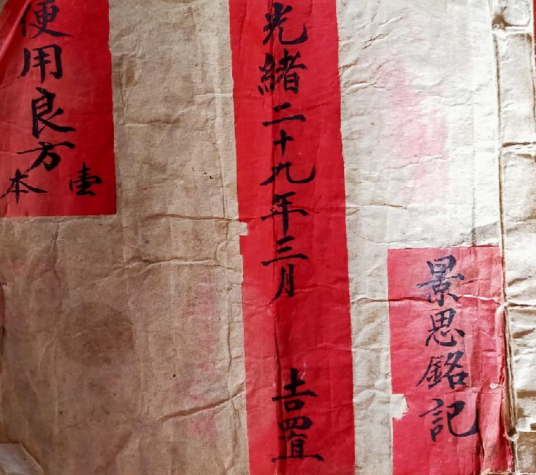 景思銘記
光緒二十九年三月 吉置
便用良方
壹本